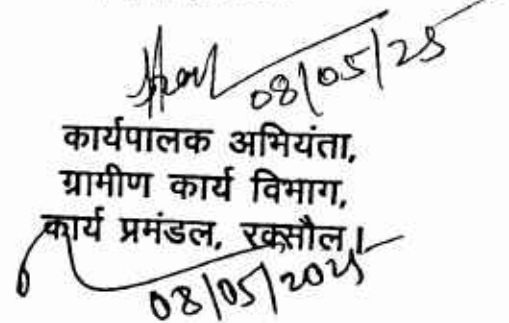 08/05/25
कार्यपालक अभियंता,
ग्रामीण कार्य विभाग,
कार्य प्रमंडल, रक्सौल।
08/05/2025